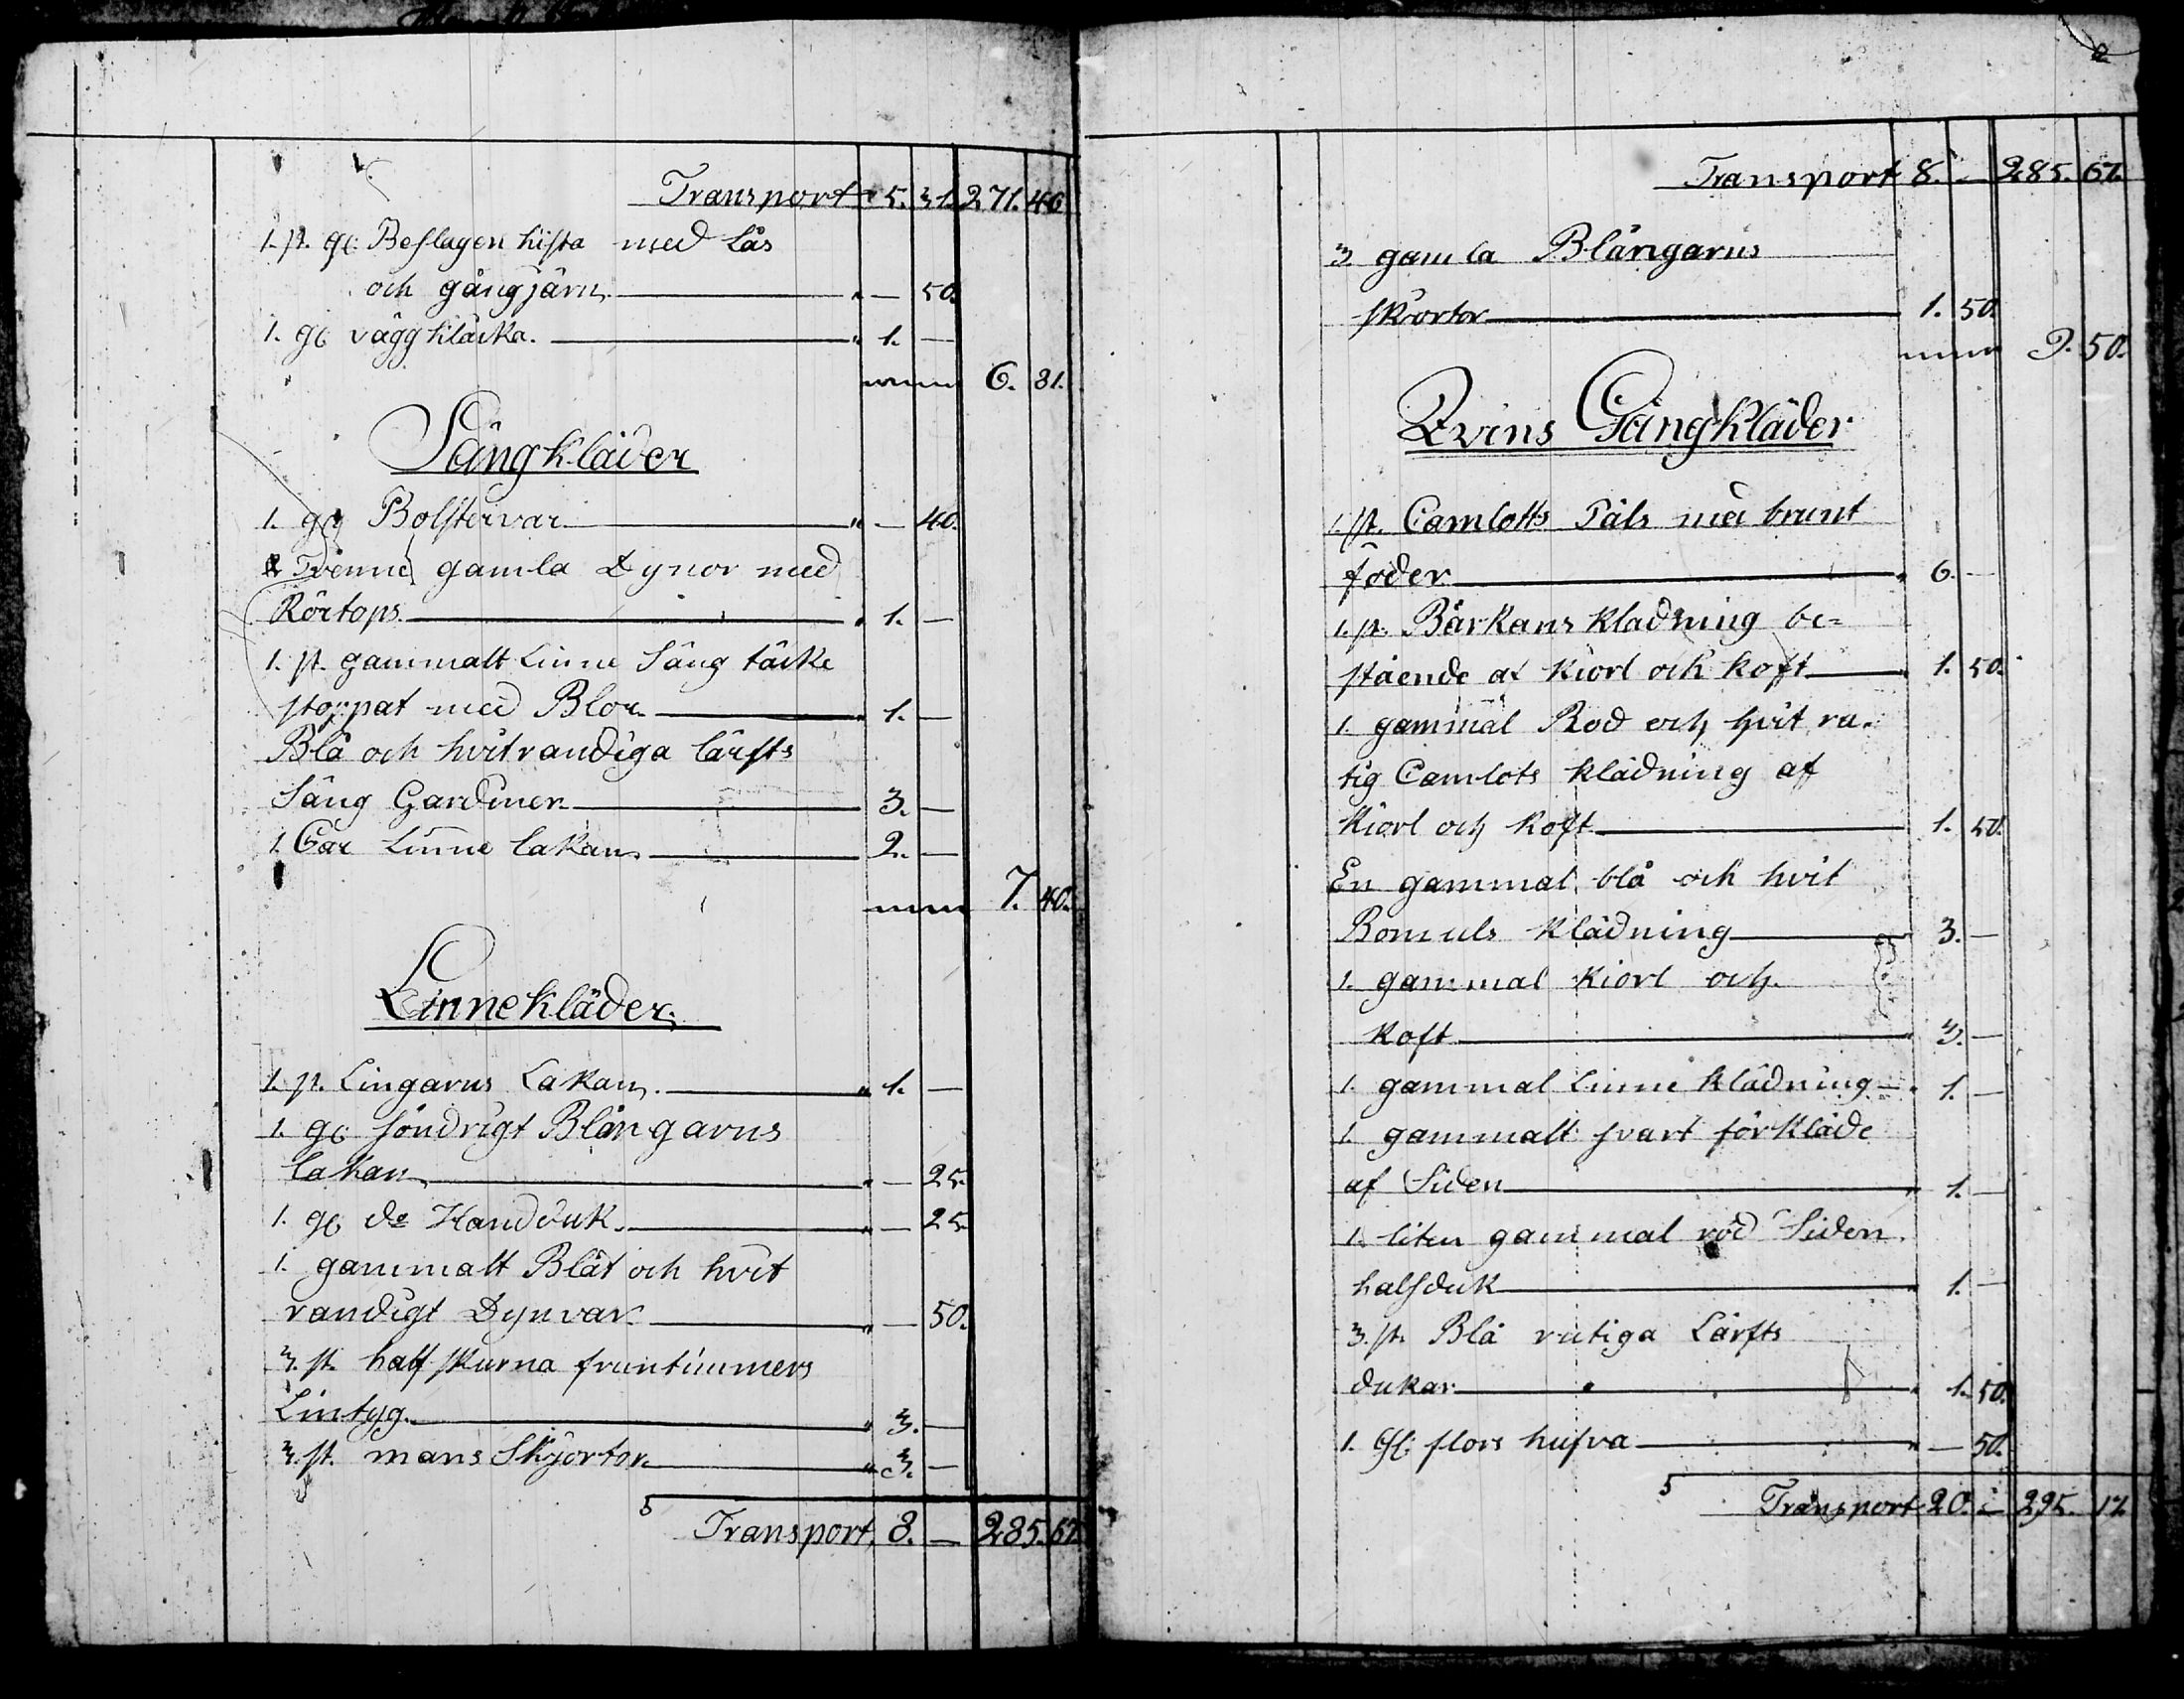 Transport 5. 31. 271. 46
1. st. gl: Beslagen kista med lås
och gångjärn " — 50.
1. gl vägg klåcka. " 1. —
6. 81.
Sängkläder
1. gl Bolstervar " — 40.
Tvenne gamla Dynor med
Rörtops " 1. —
1. st. gammalt Linne Säng täcke
stoppat med Blor " 1. —
Blå och hvitrandiga lärfts
Säng Gardiner 3. —
1. Par Linne lakan 2. —
7. 40.
Linnekläder
1. st. Lingarns Lakan. " 1. —
1. gl söndrigt Blångarns
lakan " — 25.
1. gl do Handduk " — 25
1. gammalt Blåt och hvit
randigt Dynvar " — 50.
3. st. half skurna fruntimmers
Lintyg. " 3. —
3. st. mans Skjortor " 3. —
5
Transport 8. — 285. 67.
2
Transport 8. — 285. 67.
3 gamla Blångarns
skiortor 1. 50.
9. 50.
Qvins Gångkläder
1. st. Camlotts Päls med brunt
foder " 6. —
1. st. Bärkans kladning be=
stående af Kiorl och koft " 1. 50.
1. gammal Rod och hvit ru-
tig Camlots klädning af
Kiorl och koft 1. 50.
En gammal blå och hvit
Bomuls klädning 3. —
1. gammal kiorl och
koft " 3. —
1. gammal Linne klädning — " 1. —
1. gammalt svart förkläde
af Siden " 1. —
1. liten gammal röd Siden
halsduk " 1. —
3. st. Blå rutiga Lärfts
dukar " 1. 50.
1. Gl: flors hufva " — 50.
5
Transport 20. — 295. 17.